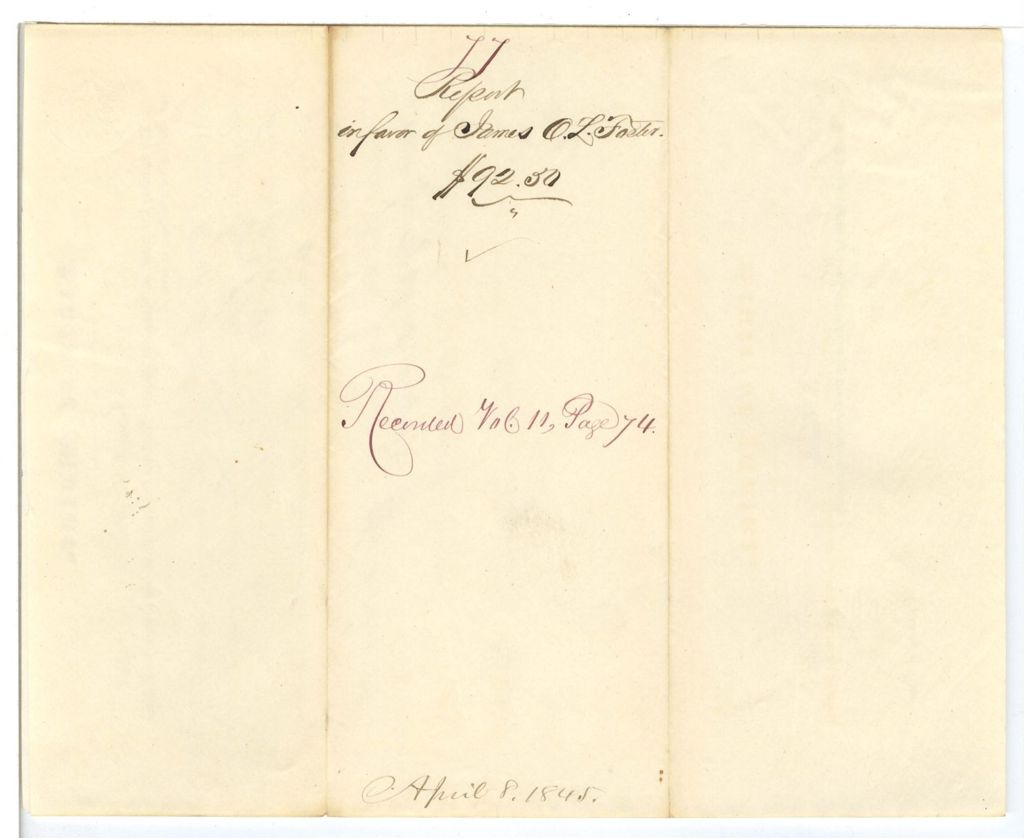 77
Report
in favor of James O. L. Foster.
$92.50
Recorded Vol. 11, Page 74.
April 8. 1845.